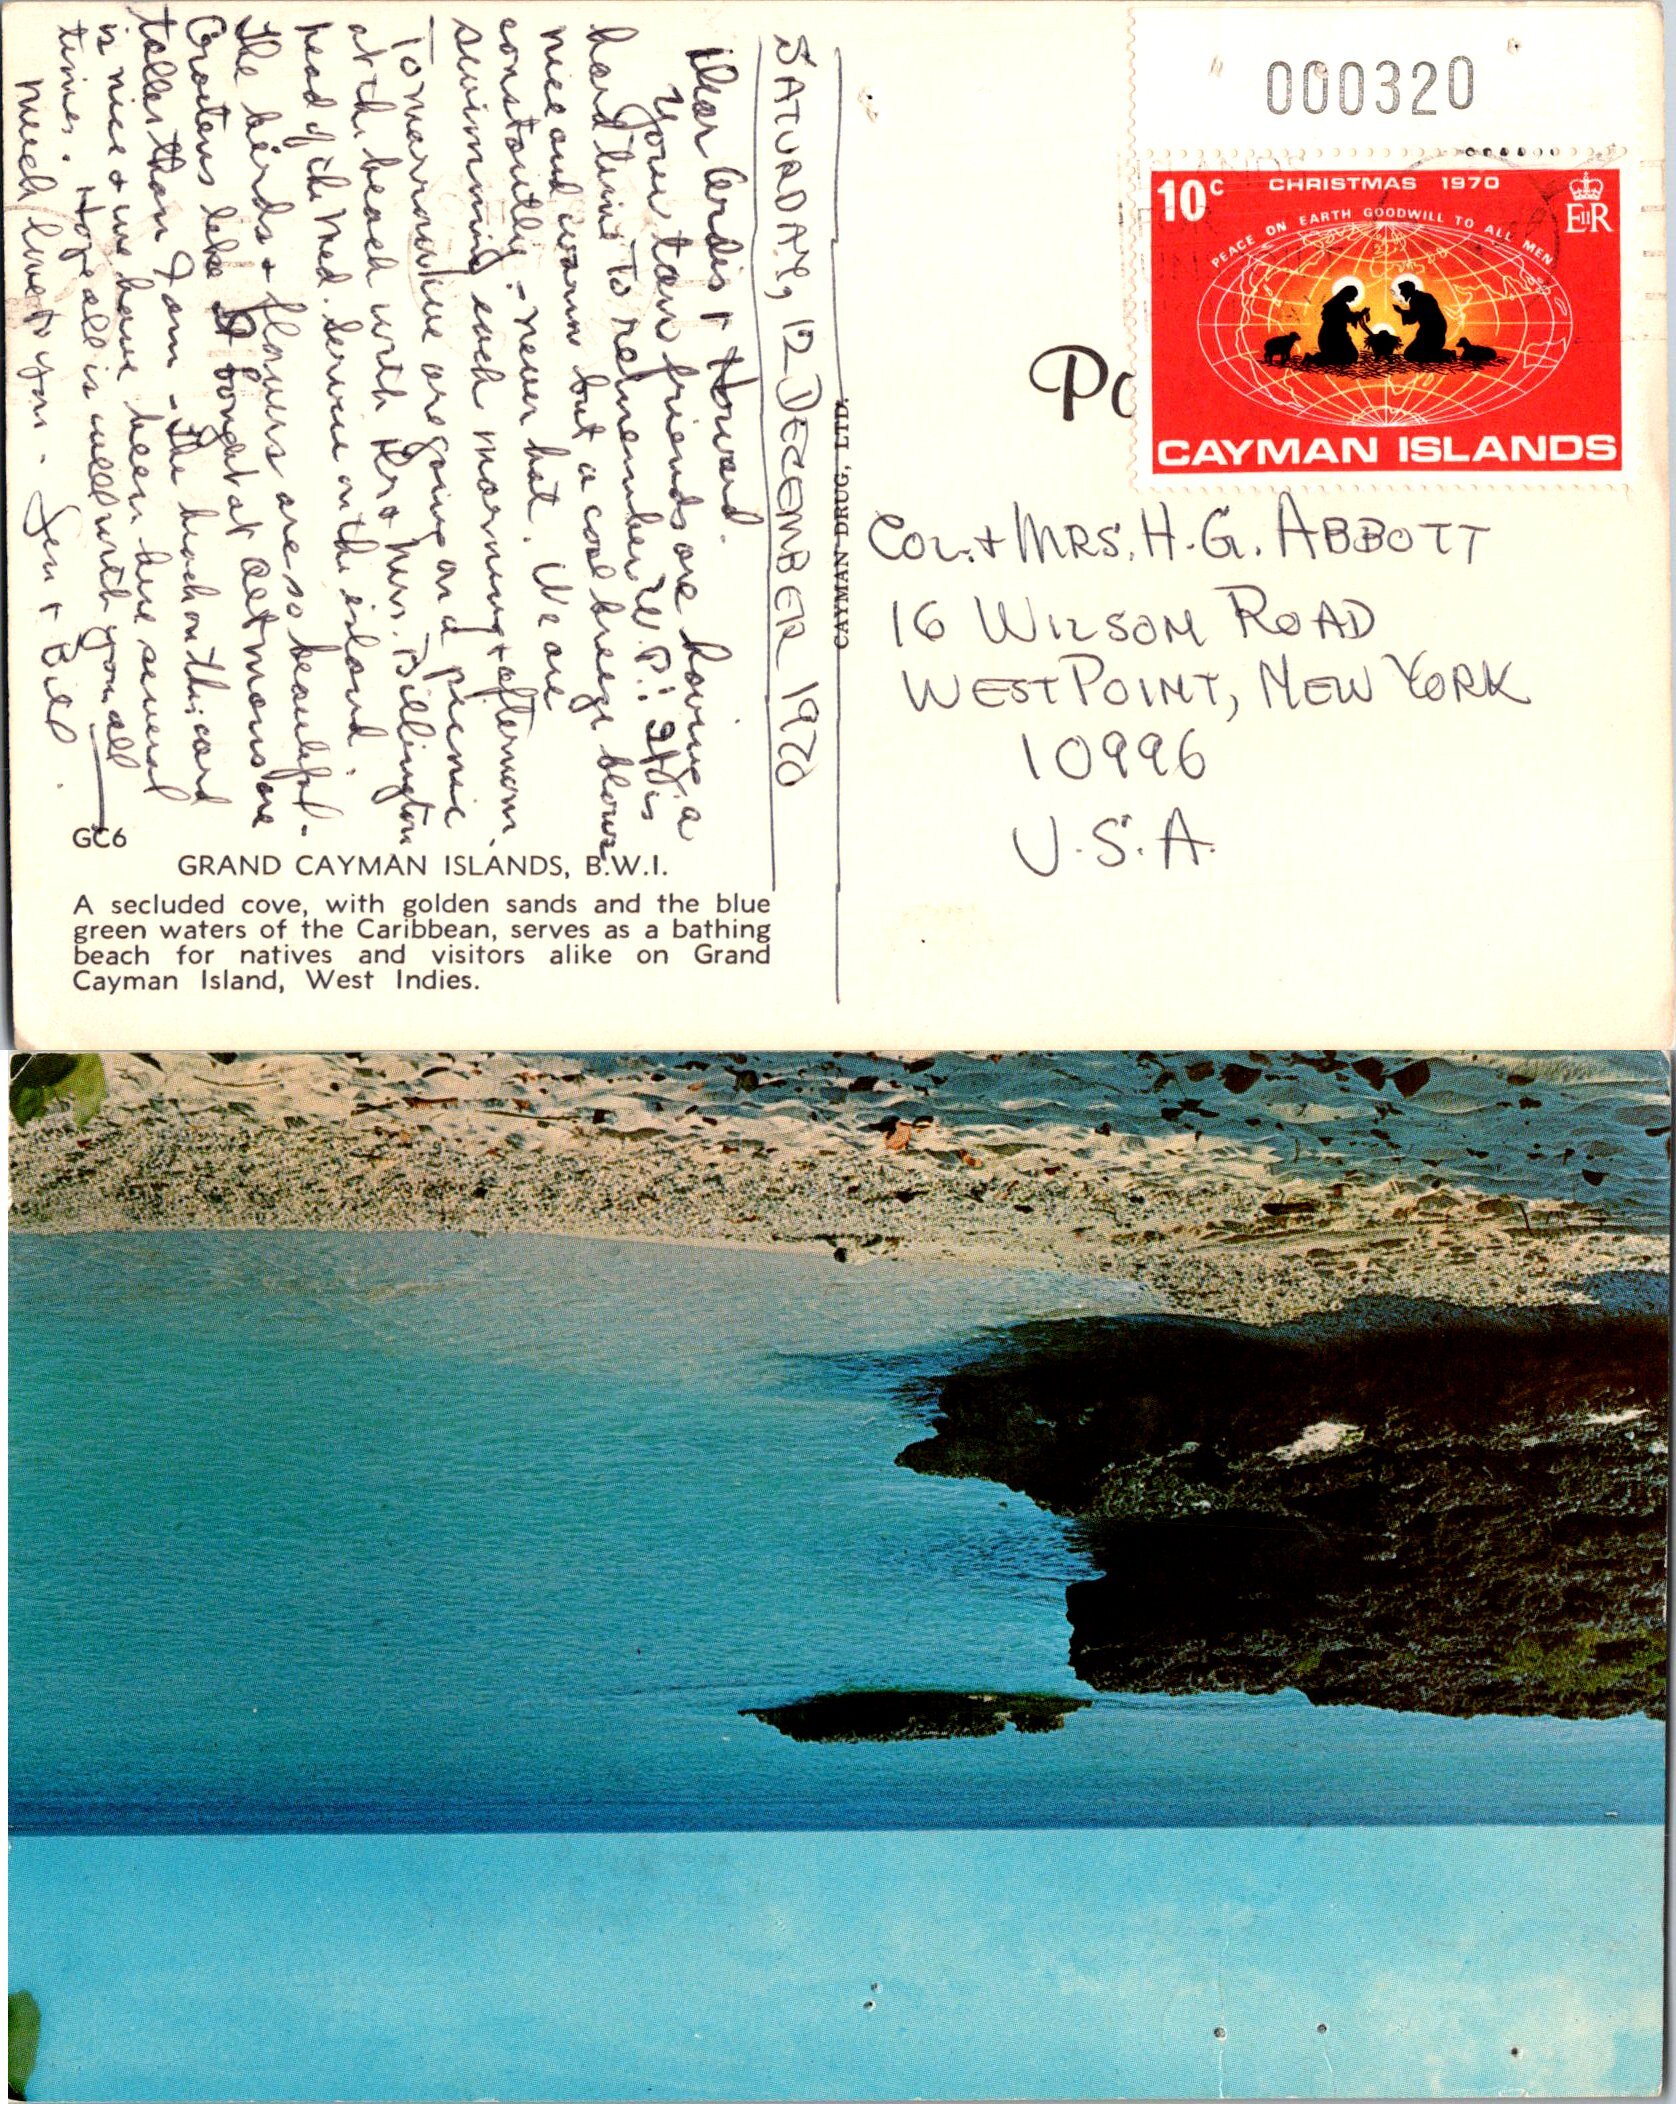 SATURDAY, 12 DECEMBER 1970
Dear Ardis + Howard.
Your tow friends are having a
hard time to remember W.P.! It is
nice and warm but a cool breeze blows
constantly - never hot. We are
swimming each morning + afternoon.
Tomorrow we are going on a picnic
at the beach with Dr + Mrs. Billington
head of the Med. Service on the island.
The birds + flowers are so beautiful -
Crotens like I bought at are
taller than I am - The beach on this card
is nice + we have been here several
times. Hope all is well with you all
Much love to you - Jen + Bill.
GC6
GRAND CAYMAN ISLANDS, B.W.I.
A secluded cove, with golden sands and the blue
green waters of the Caribbean, serves as a bathing
beach for natives and visitors alike on Grand
Cayman Island, West Indies.
CAYMAN DRUG, LTD.
000320
10c CHRISTMAS 1970 EIIR
PEACE ON EARTH GOODWILL TO ALL MEN
CAYMAN ISLANDS
Po
COL. + MRS. H. G. ABBOTT
16 WILSON ROAD
WEST POINT, NEW YORK
10996
U.S.A.